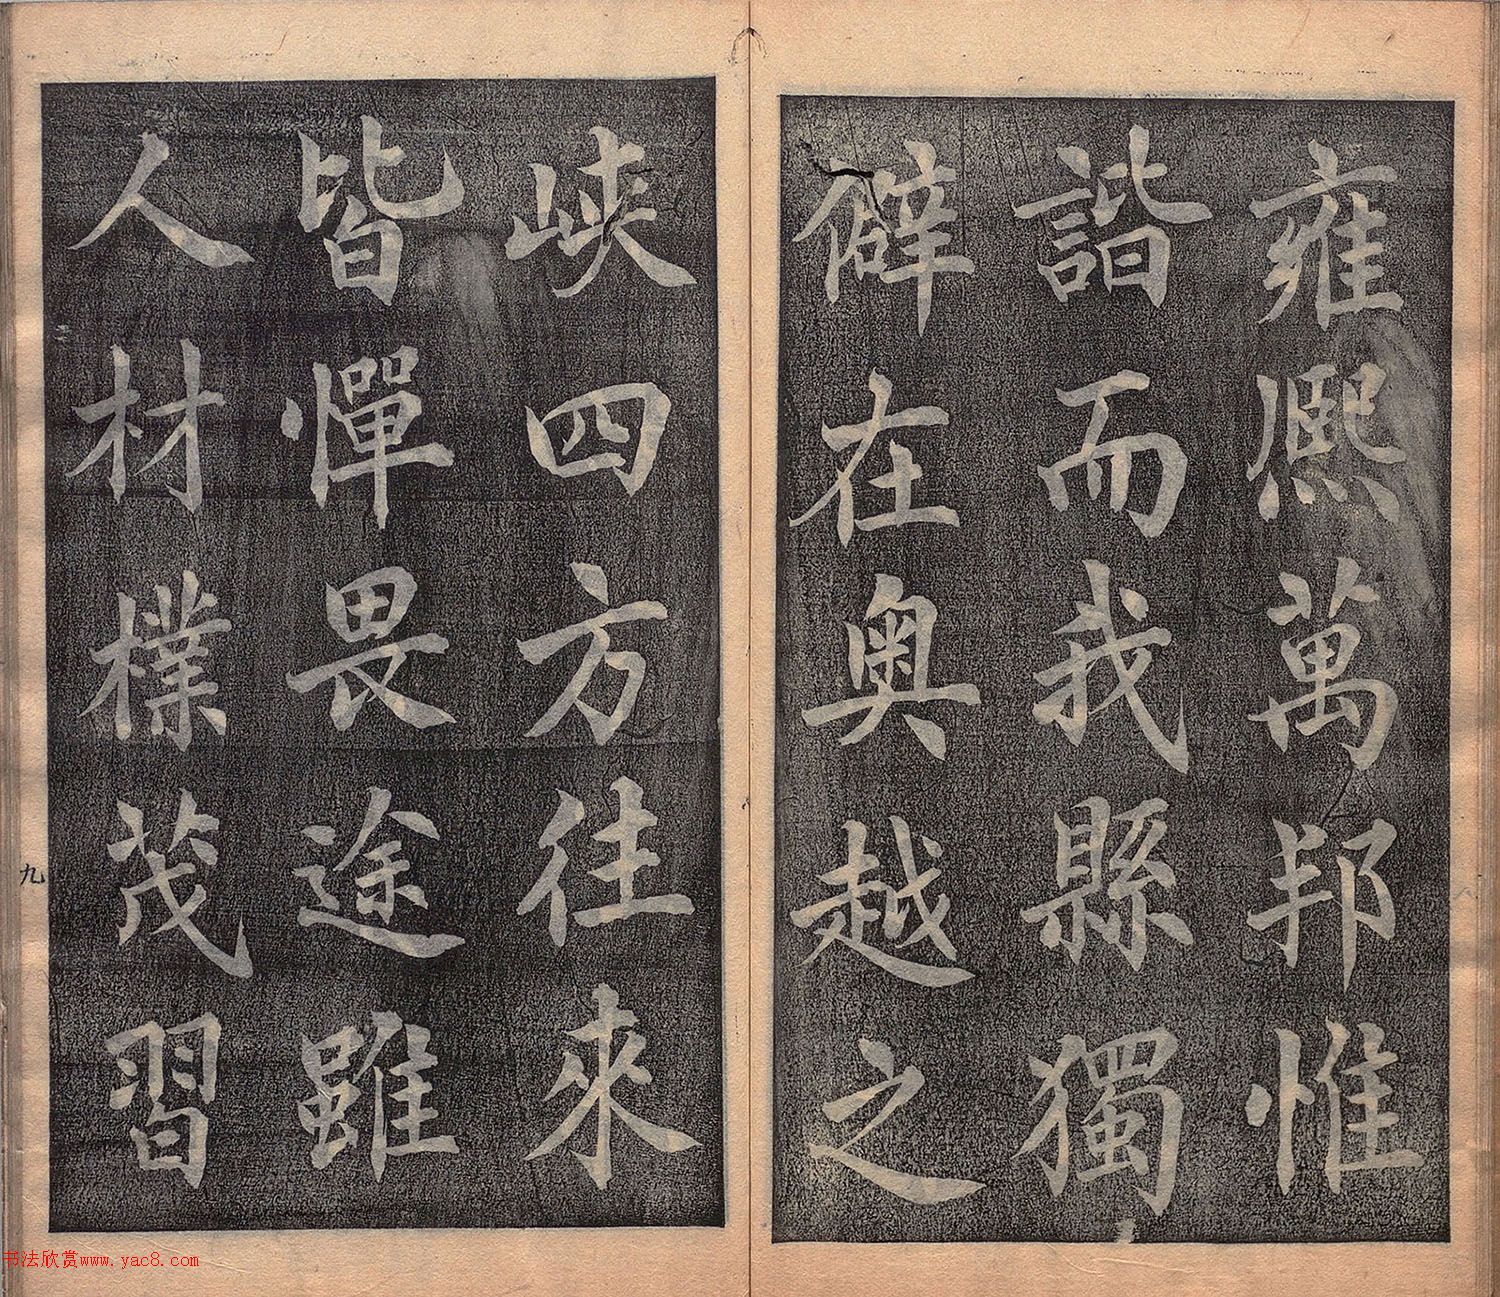 雍熙萬邦惟
諧而我縣獨
僻在奧越之
峽四方往來
皆憚畏途雖
人材樸茂習
九
书法欣赏www.yac8.com